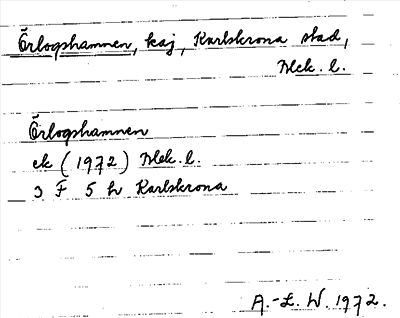 Örlogshamnen, kaj, Karlskrona stad,
Blek. l.
Örlogshamnen
ek (1972) Blek. l.
3 F 5 h Karlskrona
A.-L. W. 1972.